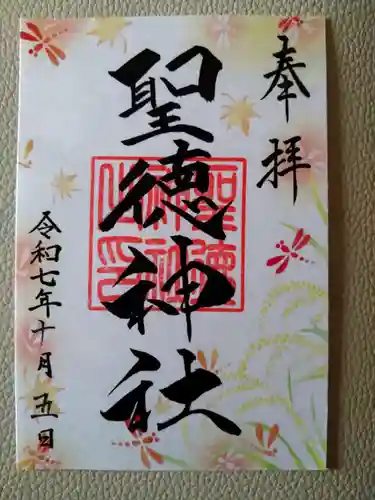 奉拝
聖徳神社
聖徳神社之印
令和七年十月五日